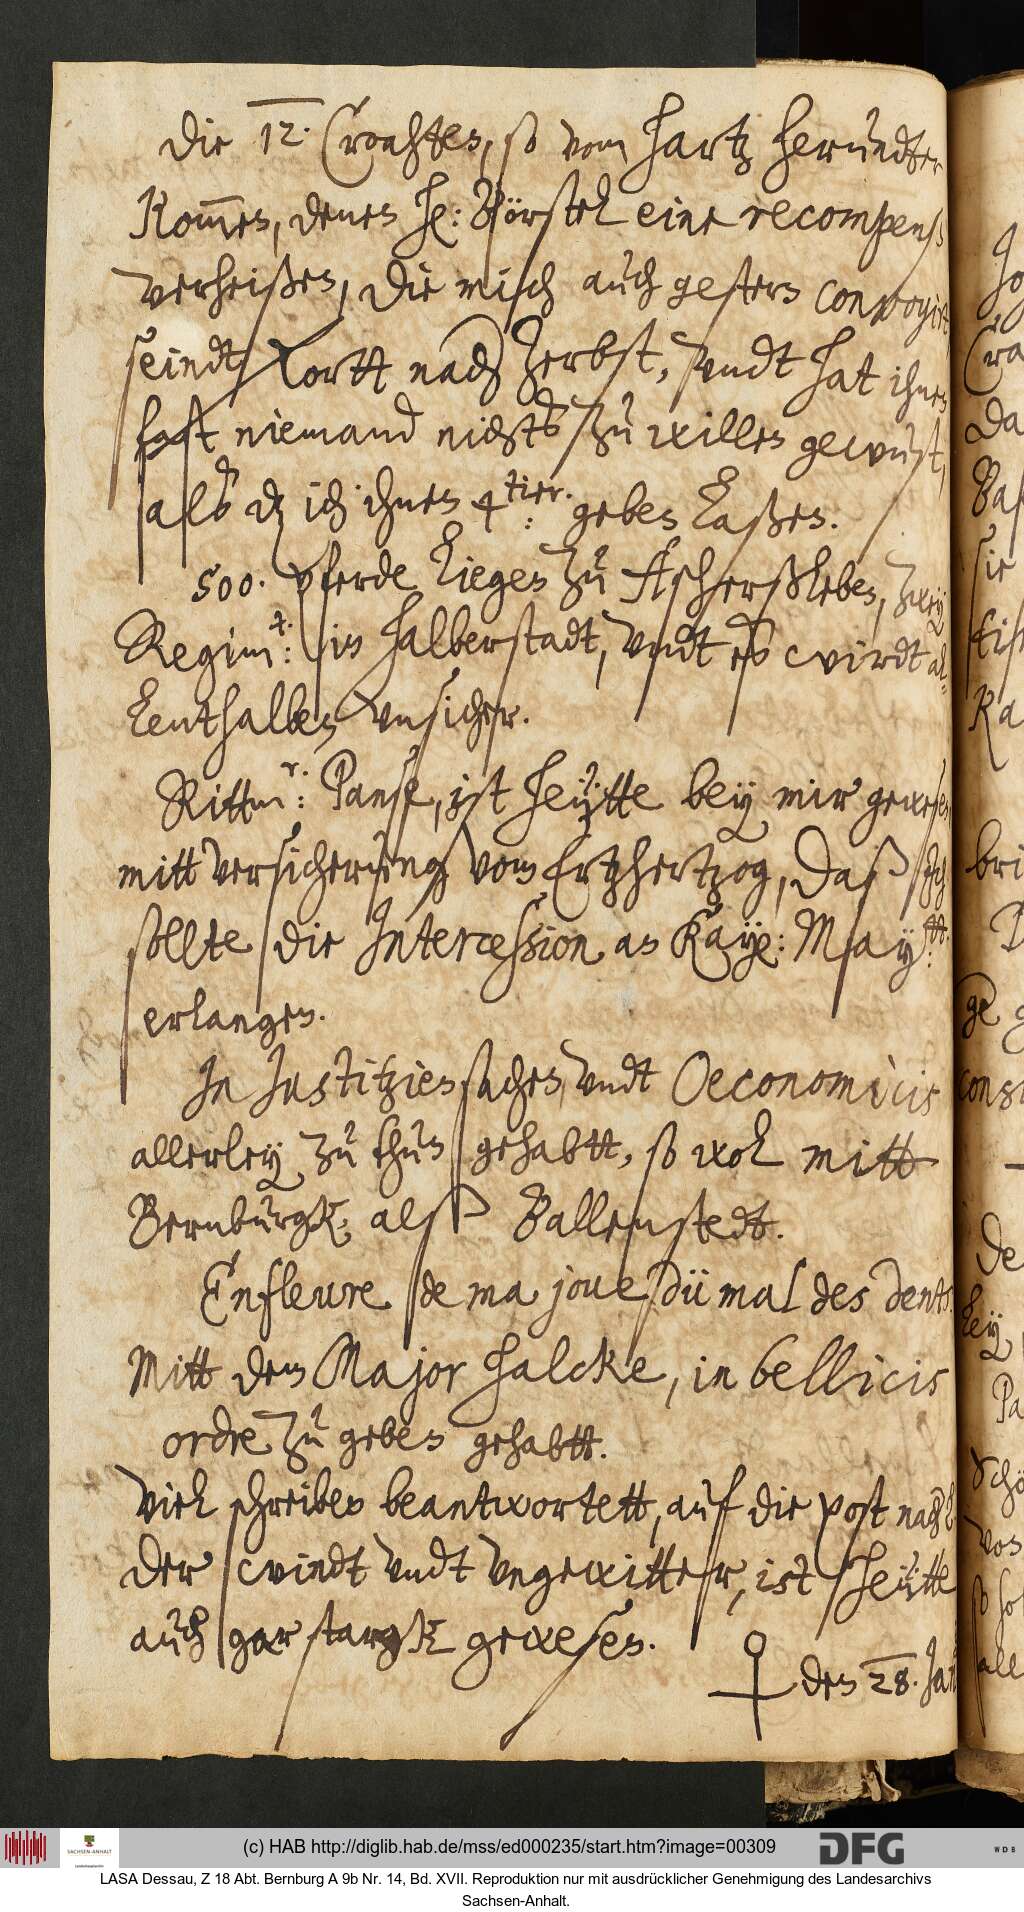 Die 12. Croahten, so vom Hartz herundter
kom̅en, denen H: Börstel eine recompenß
verheißen, die mich auch gestern convoyirt,
seindt fortt nach Zerbst, vndt hat ihnen
fast niemand nichts zu willen gewust,
alß dz ich ihnen 4tier: geben laßen.
500. pferde liegen zu Ascherßleben, zwey
Regim:t in Halberstadt, vndt es wirdt al-
lenthalben vnsicher.
Rittm:r Panse, ist heütte bey mir gewesen,
mitt versicherung vom Ertzhertzog, daß ich
sollte die Intercession an Kaye: May:tt
erlangen.
In Justitzien sachen, vndt Oeconomicis
allerley zu thun gehabtt, so wol mitt
Bernburgk, alß Ballenstedt.
Enfleure de ma joue, dü mal des dents.
Mitt dem Major Halcke, in bellicis
ordre zu geben gehabtt.
Viel schreiben beantwortett, auf die post nach
der windt vndt vngewitter, ist heütte
auch gar starck gewesen.
♀ den 28. Jan
(c) HAB http://diglib.hab.de/mss/ed000235/start.htm?image=00309
DFG
WDB
SACHSEN-ANHALT
LASA Dessau, Z 18 Abt. Bernburg A 9b Nr. 14, Bd. XVII. Reproduktion nur mit ausdrücklicher Genehmigung des Landesarchivs
Sachsen-Anhalt.